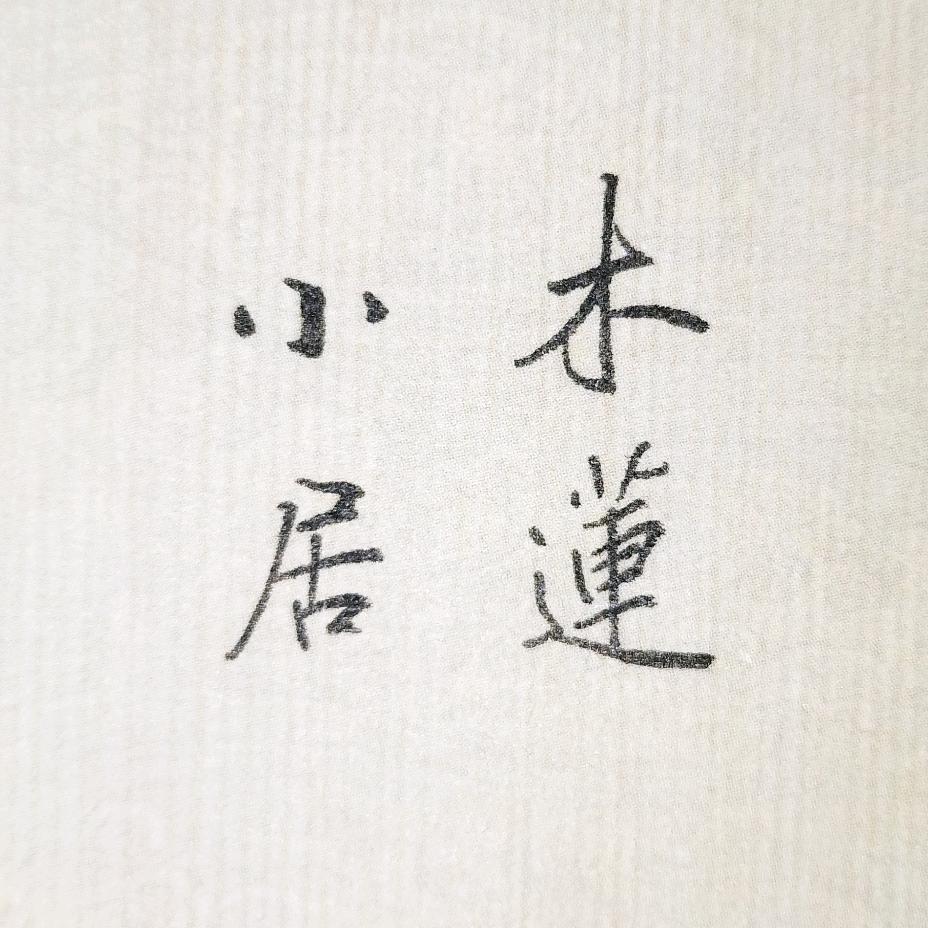 木蓮
小居